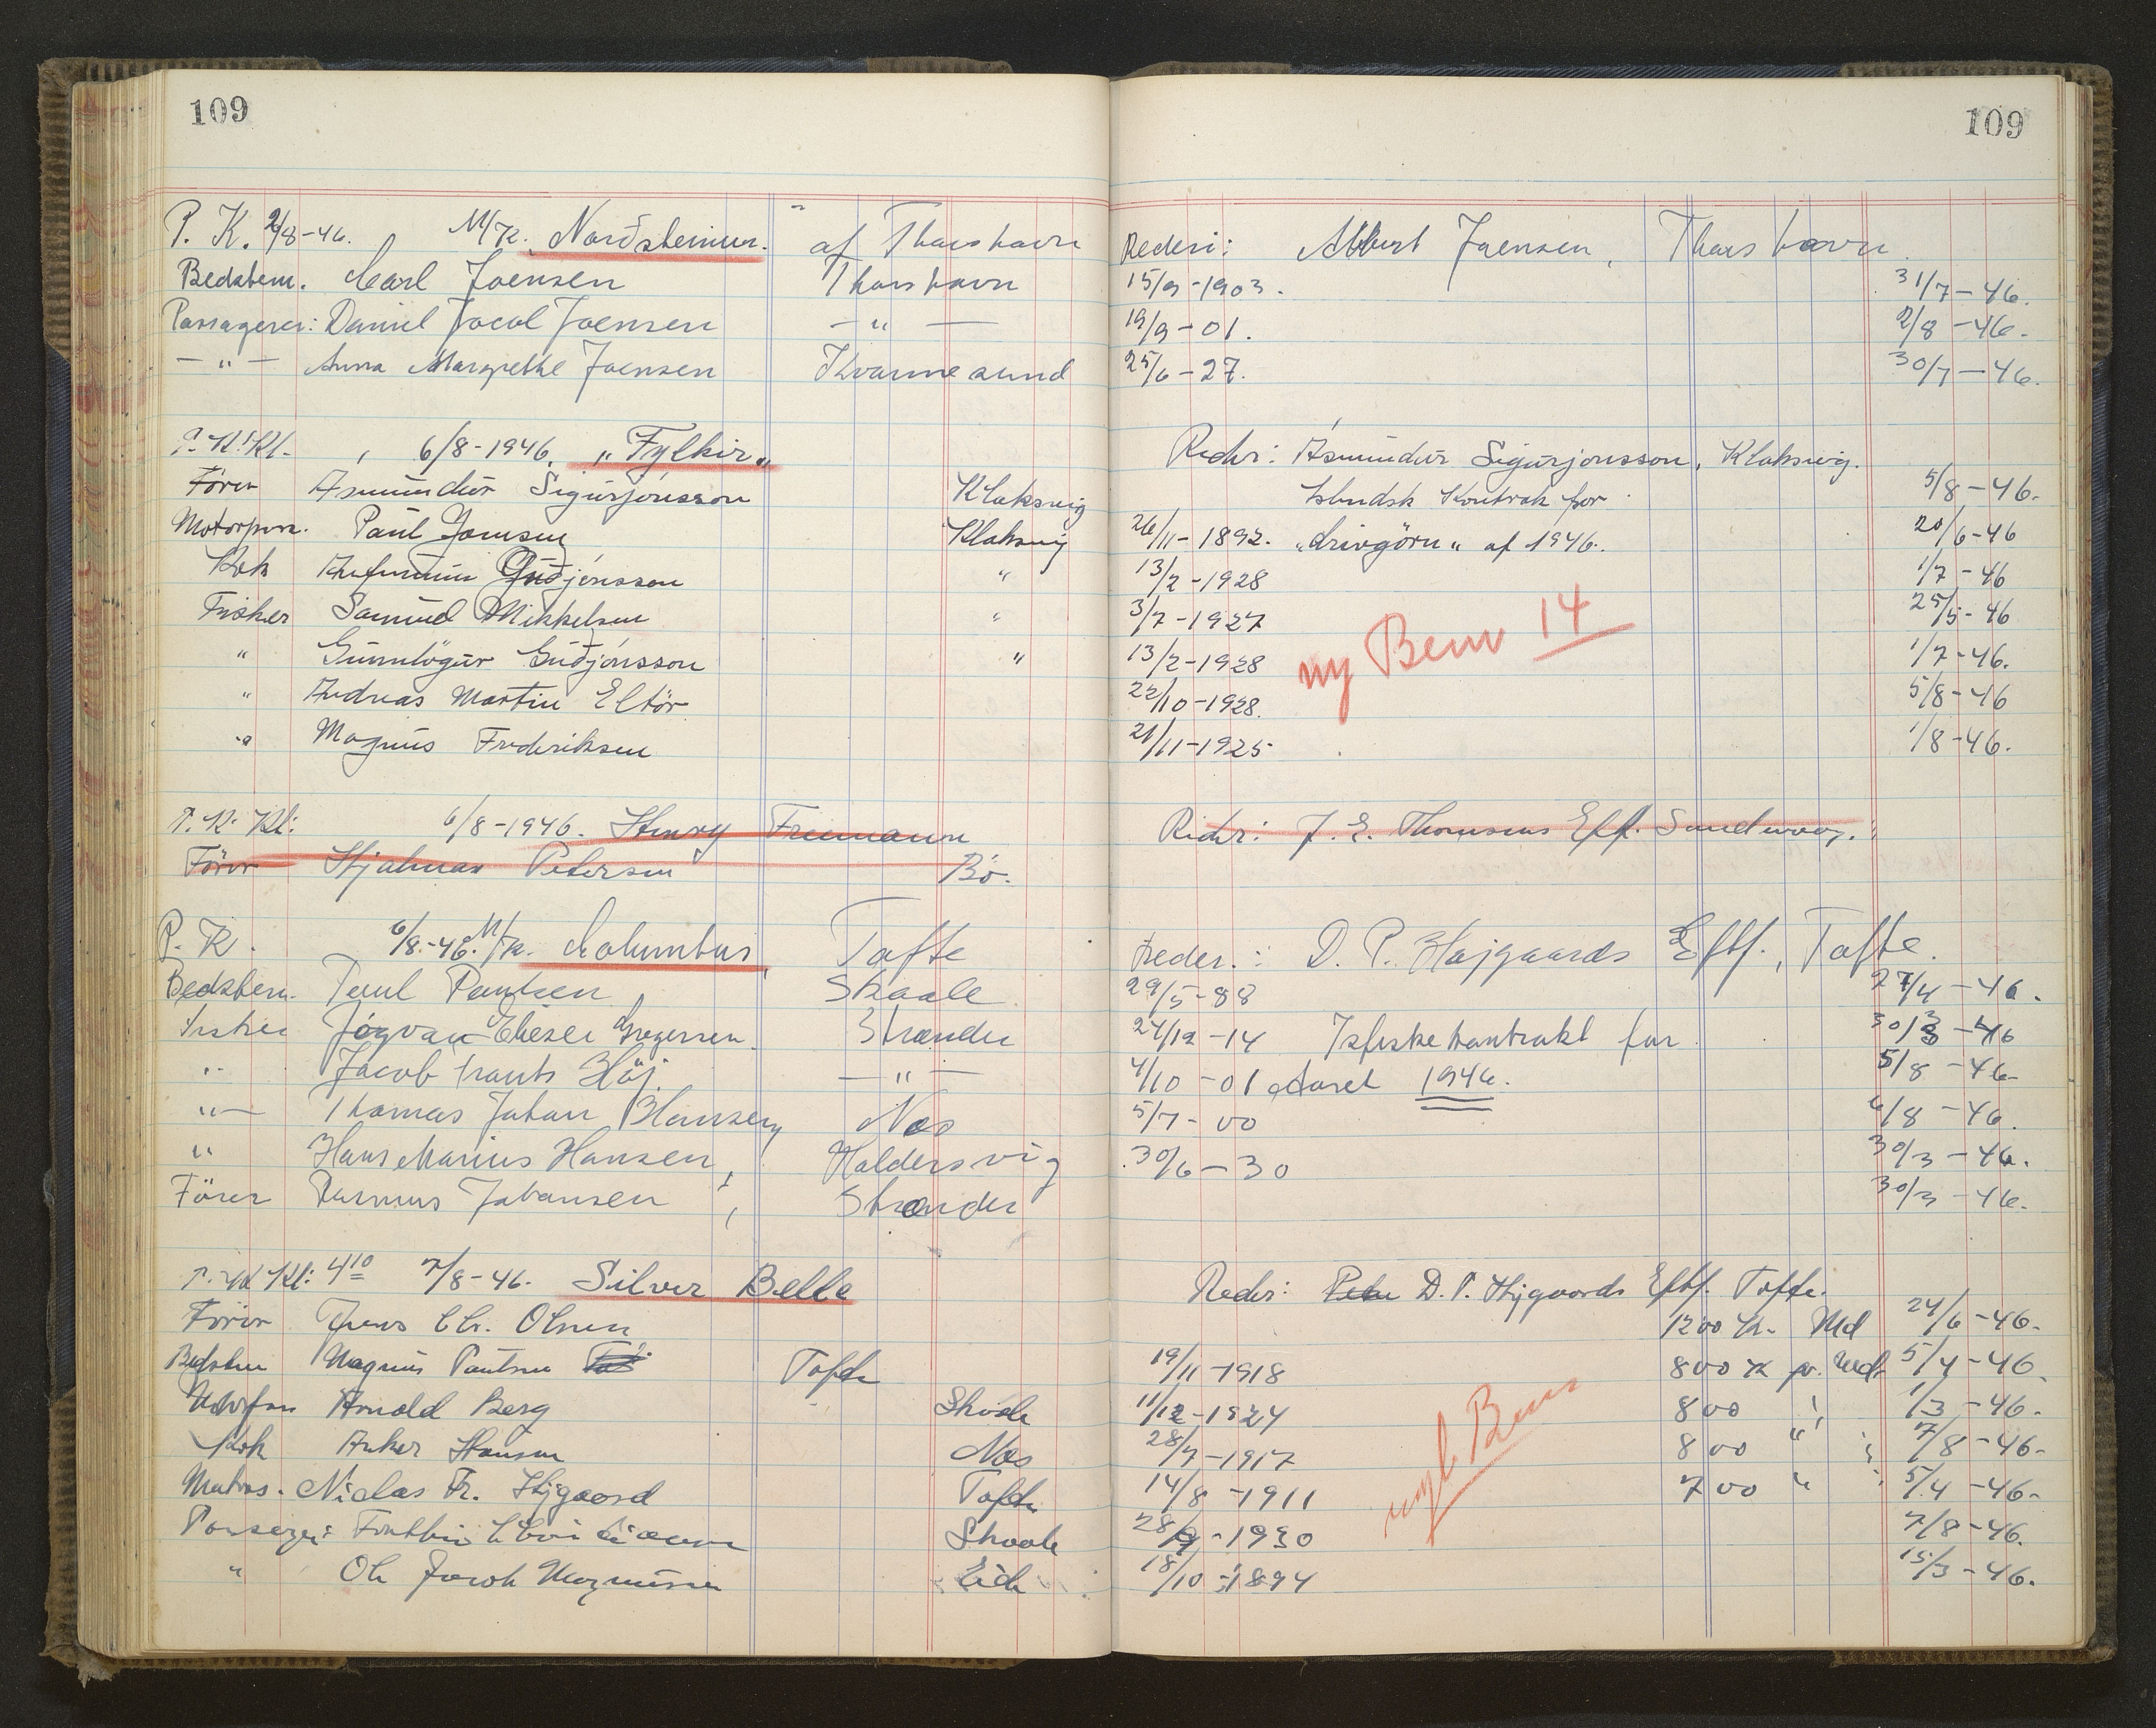 109 109
P. K. 2/8-46. M/K. Nordstjernen. af Thorshavn Rederi: Albert Joensen, Thorshavn
Bedstem. Carl Joensen Thorshavn 15/9-1903. 31/7-46.
Passagerer: Daniel Jacob Joensen -"- 19/9-01. 2/8-46.
-"- Anna Margrethe Joensen Kvannesund 25/6-27. 30/7-46.
P.K.Kl. 6/8-1946. "Fylkir" Reder: Ásmundur Sigurjonsson, Klaksvig.
Förer Asmundur Sigurjónsson Klaksvig Islandsk Kontrak for 5/8-46.
Motorpas. Paul Joensen Klaksvig 26/11-1892. "drivgörn" af 1946. 20/6-46
Kok Guðjónsson " 13/2-1928 1/7-46
Fisker Samuel Mikkelsen " 3/7-1927 25/5-46
" Gunnlögur Guðjónsson " 13/2-1928 1/7-46.
ny Bem 14
" Andreas Martin Eltör 22/10-1928. 5/8-46
" Magnus Frederiksen 21/11-1925 1/8-46.
P. K. Kl: 6/8-1946. Henry Freemann Reder: J. E. Thomsens Eff. Sandvaag.
Förer Hjalmar Petersen Bö.
P. K. 6/8-46. M/K. Columbus, Tofte Reder.: D. P. Højgaards Eftf., Tofte.
Bedstem. Poul Poulsen Skaale 29/5-88 27/4-46.
Fisker Jógvan Elieser Gregersen Strænder 24/12-14 Isfiskekontrakt for 30/3-46
" Jacob Frants Höj. -"- 4/10-01 Aaret 1946. 5/8-46
"- Thomas Johan Hansen Nes 5/7-00 6/8-46.
" Hans Marius Hansen, Haldersvig 30/6-30 30/3-46.
Förer Rasmus Johansen, Strænder 30/3-46.
P. K Kl: 4¹⁰ 7/8-46. Silver Belle Reder: D. P. Højgaards Eftf. Tofte.
Förer Jens Chr. Olsen 1200 Kr. Md 24/6-46.
Bedstem Magnus Poulsen Tofte 19/11-1918 800 K pr. Md 5/4-46.
Arnold Berg Skaale 11/12-1924 800 " 1/3-46.
Kok Anker Hansen Nes 28/7-1917 800 " " 7/8-46-
Matros. Niclas Fr. Højgaard Tofte 14/8-1911 700 " " 5/4-46-
Passager: Skaale 28/9-1930 7/8-46.
" Ole Jacob Magnussen Eide 18/10-1894 15/3-46.